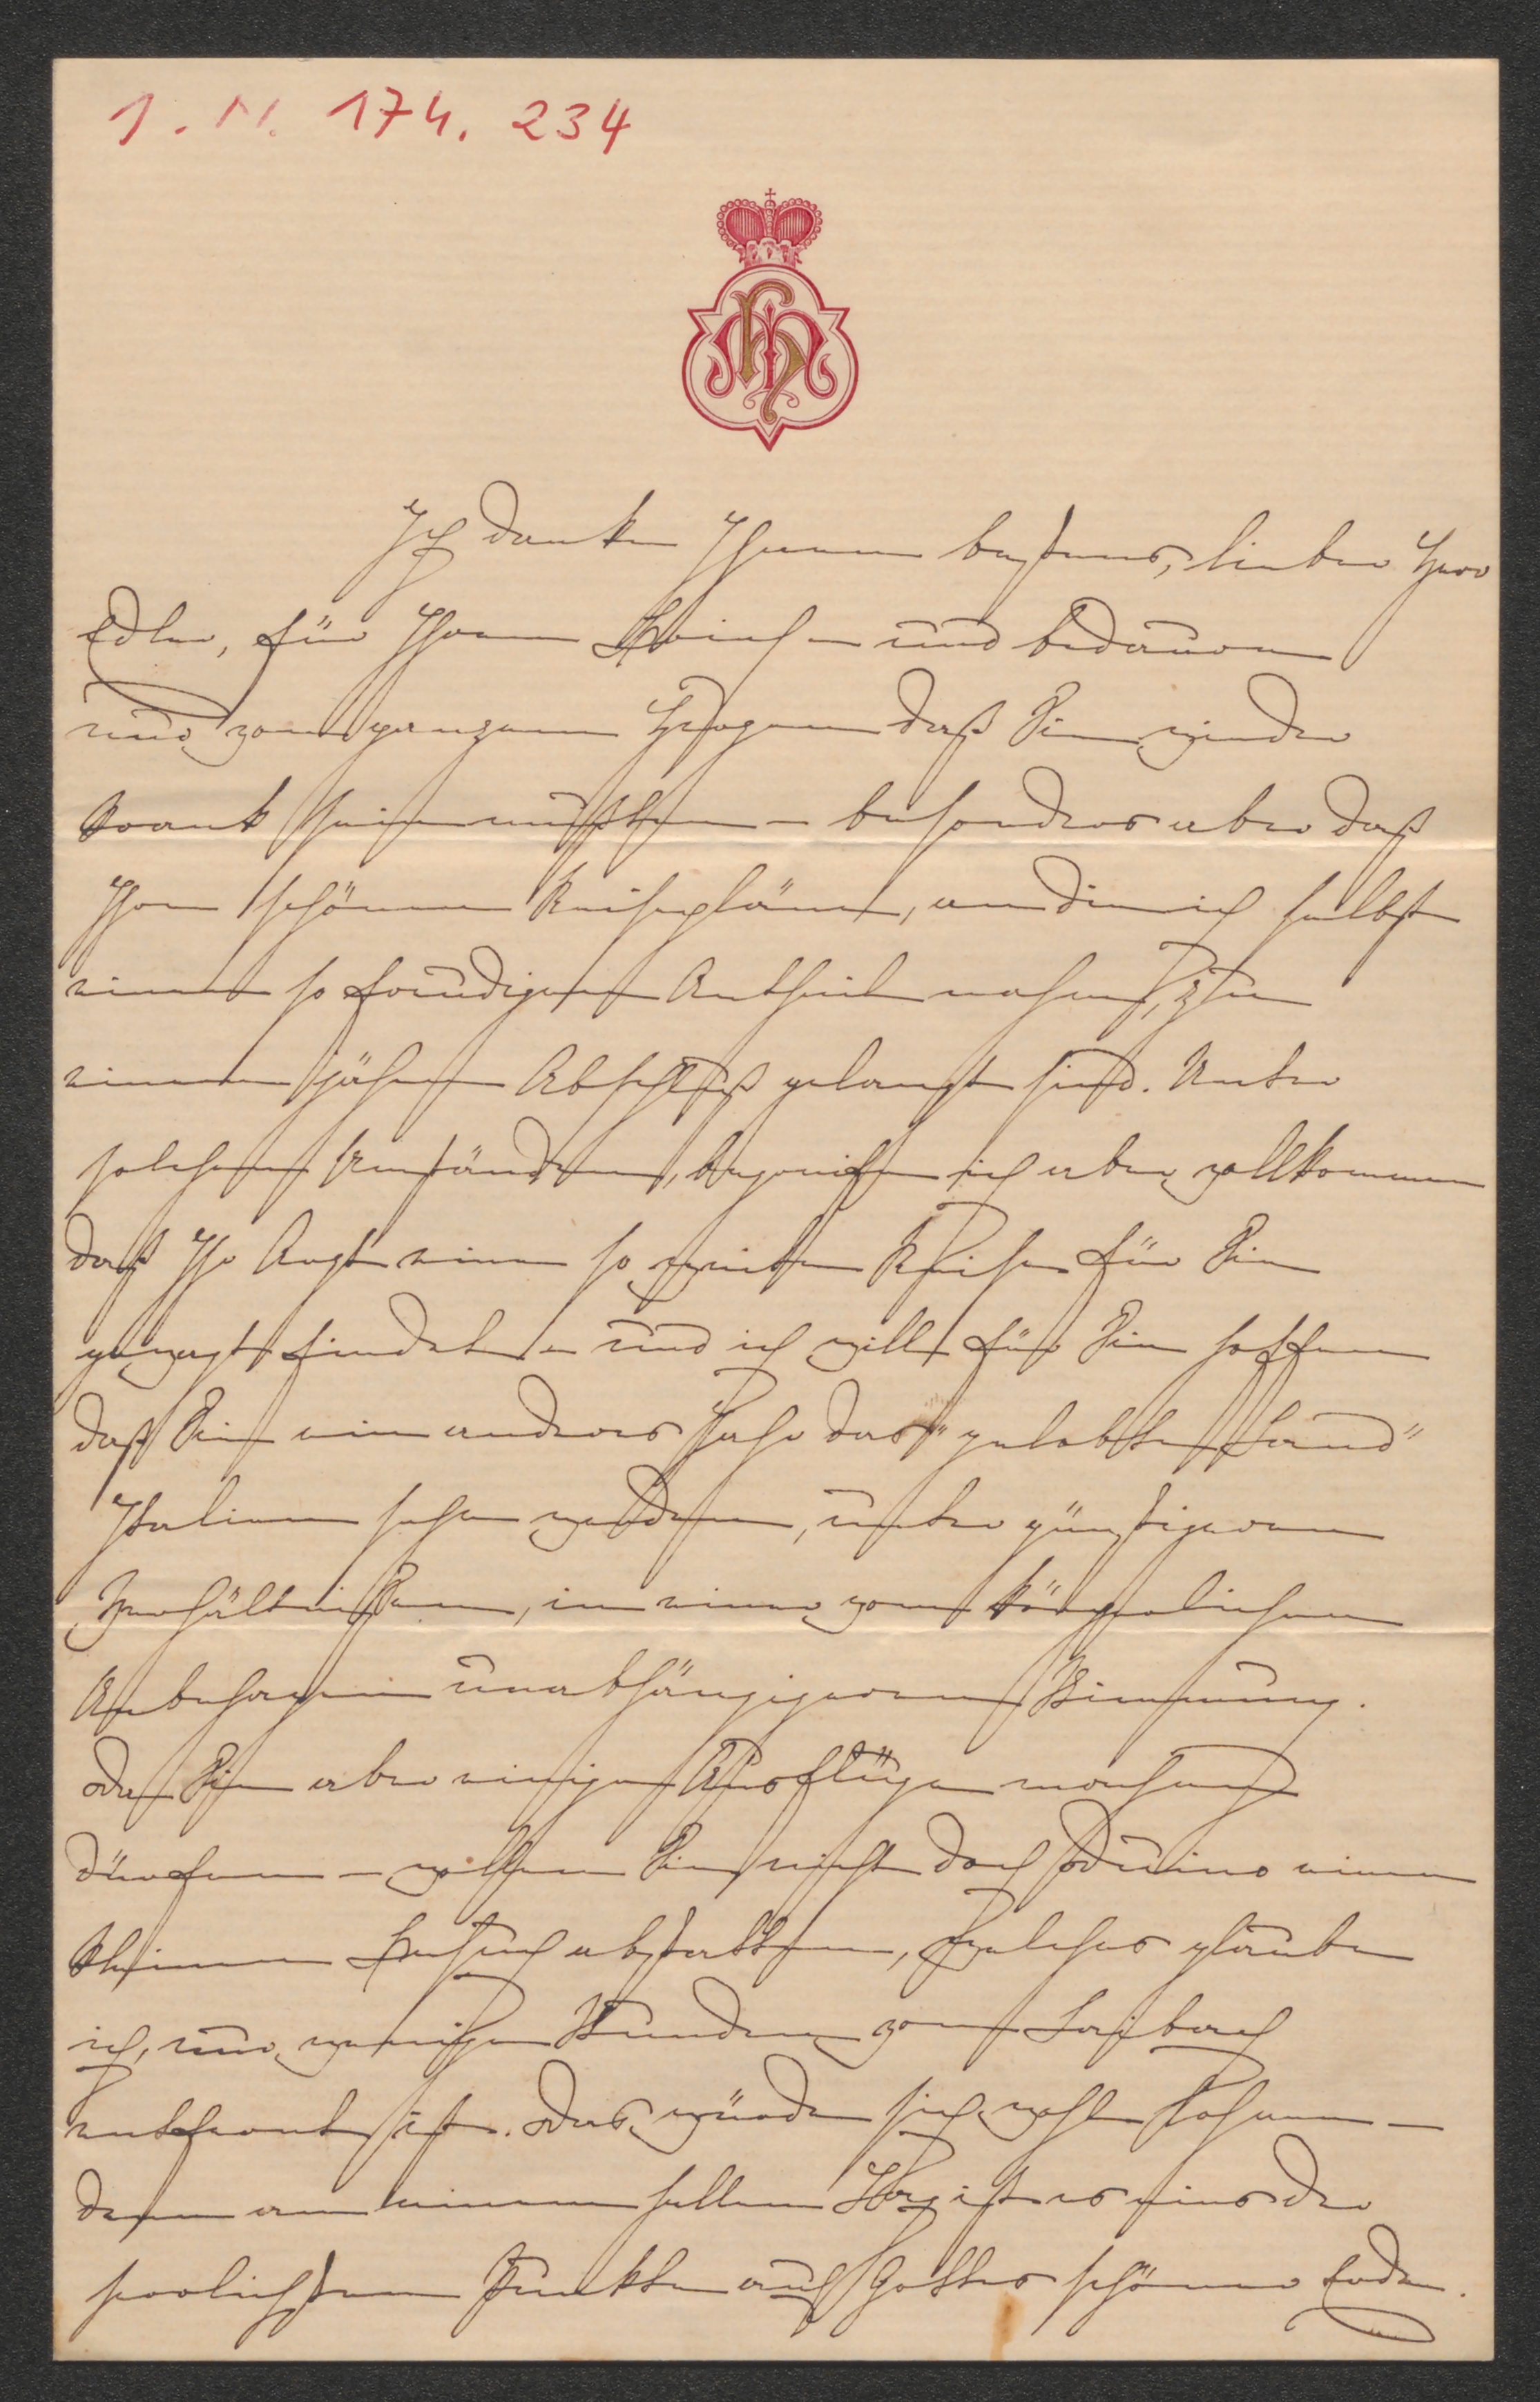 I. N. 174. 234
Ich danke Ihnen bestens, lieber Herr
Edler, für Ihren Brief – und bedauere
nur von ganzem Herzen daß Sie wieder
krank sein mußten – besonders aber daß
Ihre schönen Reisepläne, an denen ich selbst
einen so freudigen Antheil nahm, zu
einem jähen Abschluß gelangt sind. Unter
solchen Umständen, begreife ich aber vollkommen
daß Ihr Arzt eine so weite Reise für Sie
gewagt findet – und ich will für Sie hoffen
daß Sie ein anderes Jahr das "gelobte Land"
Italien sehen werden, unter günstigeren
Verhältnissen, in einer vom körperlichen
Unbehagen unabhängigeren Stimmung.
Da Sie aber einige Ausflüge machen
dürfen – wollen Sie nicht doch Duino einen
kleinen Besuch abstatten, welches glaube
ich, nur wenige Stunden von Laibach
entfernt ist. Das würde sich wohl lohnen –
denn an einem hellen Tag ist es eines der
herrlichsten Punkte auf Gottes schöner Erde.